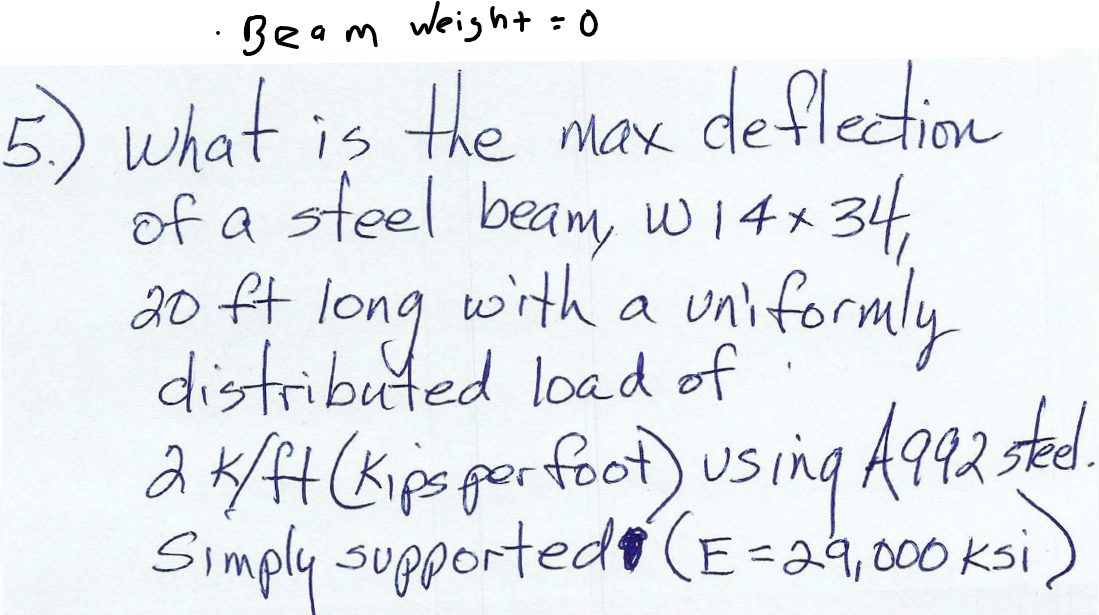 . Beam weight = 0
5.) What is the max deflection
of a steel beam, W14x34,
20 ft long with a uniformly
distributed load of
2 K/ft (Kips per foot) using A992 steel.
Simply supported (E = 29,000 ksi)